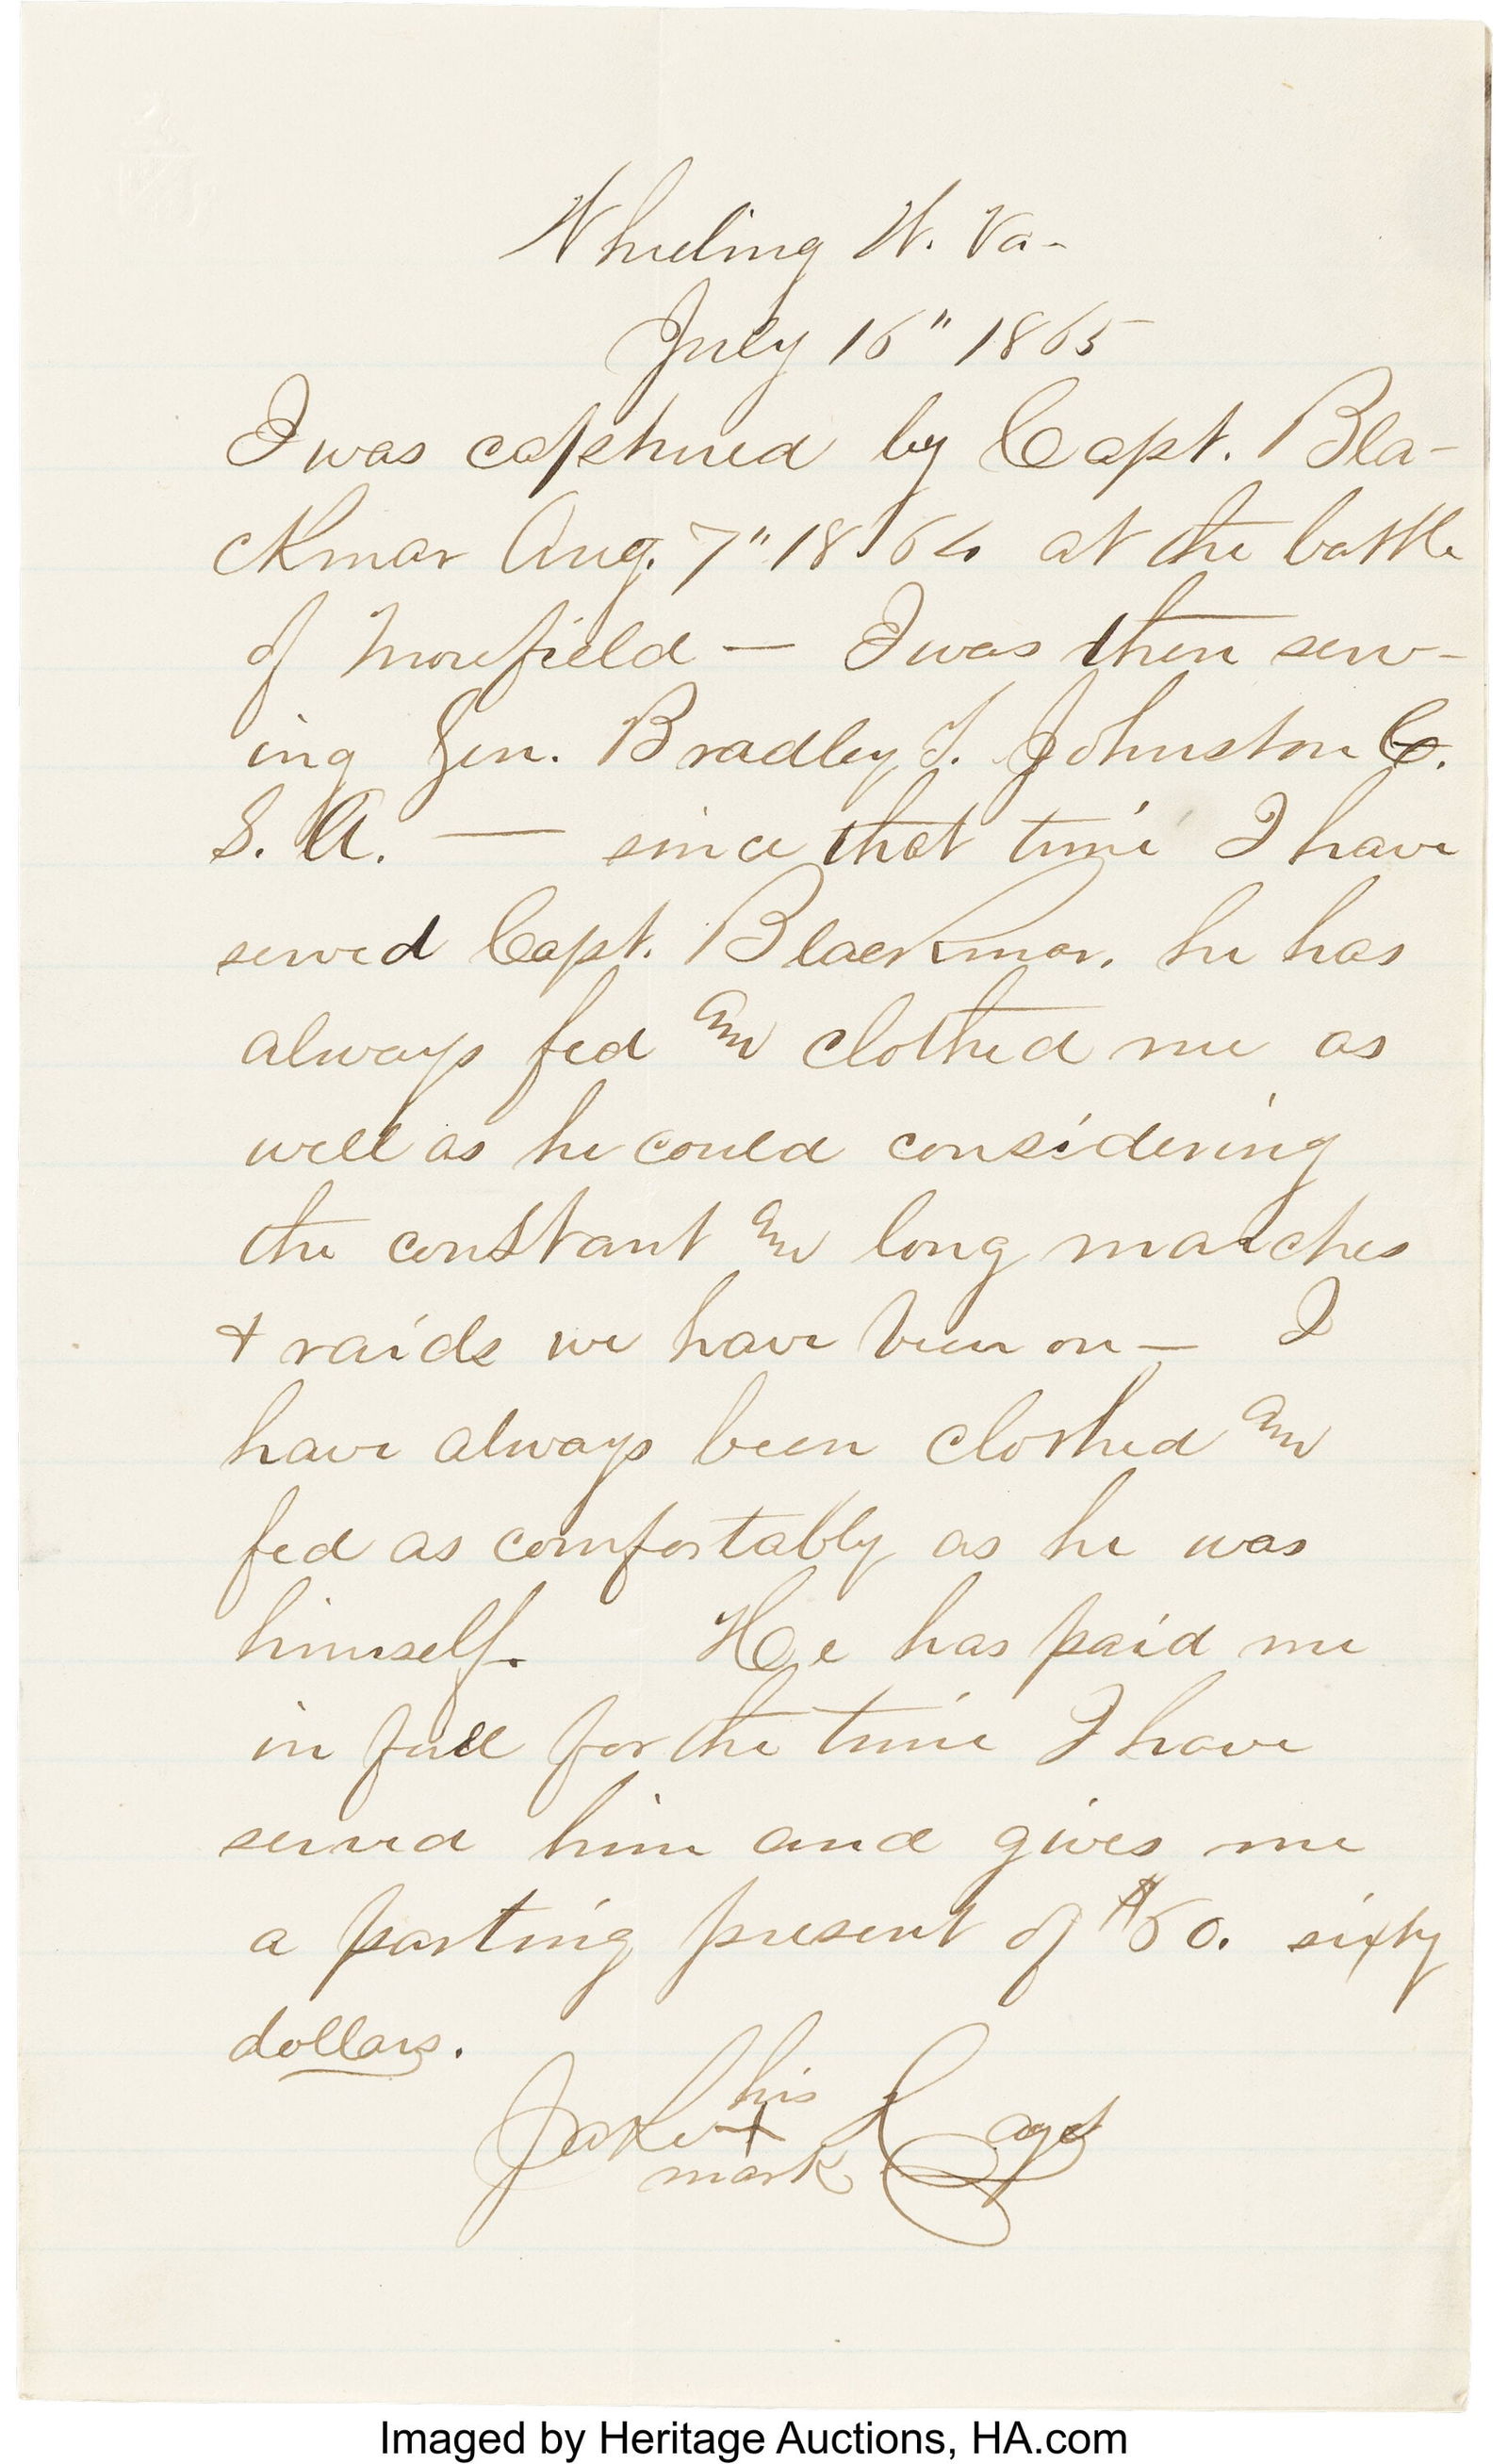 Wheeling W. Va-
July 16" 1865
I was captured by Capt. Bla-
ckmar Aug. 7" 1864 at the battle
of Morefield — I was then serv-
ing Gen. Bradley T. Johnston C.
S. A. — since that time I have
served Capt. Blackmar. he has
always fed and clothed me as
well as he could considering
the constant and long marches
+ raids we have been on — I
have always been clothed and
fed as comfortably as he was
himself. He has paid me
in full for the time I have
served him and gives me
a parting present of $60. sixty
dollars.
his
Jake +
mark
Imaged by Heritage Auctions, HA.com